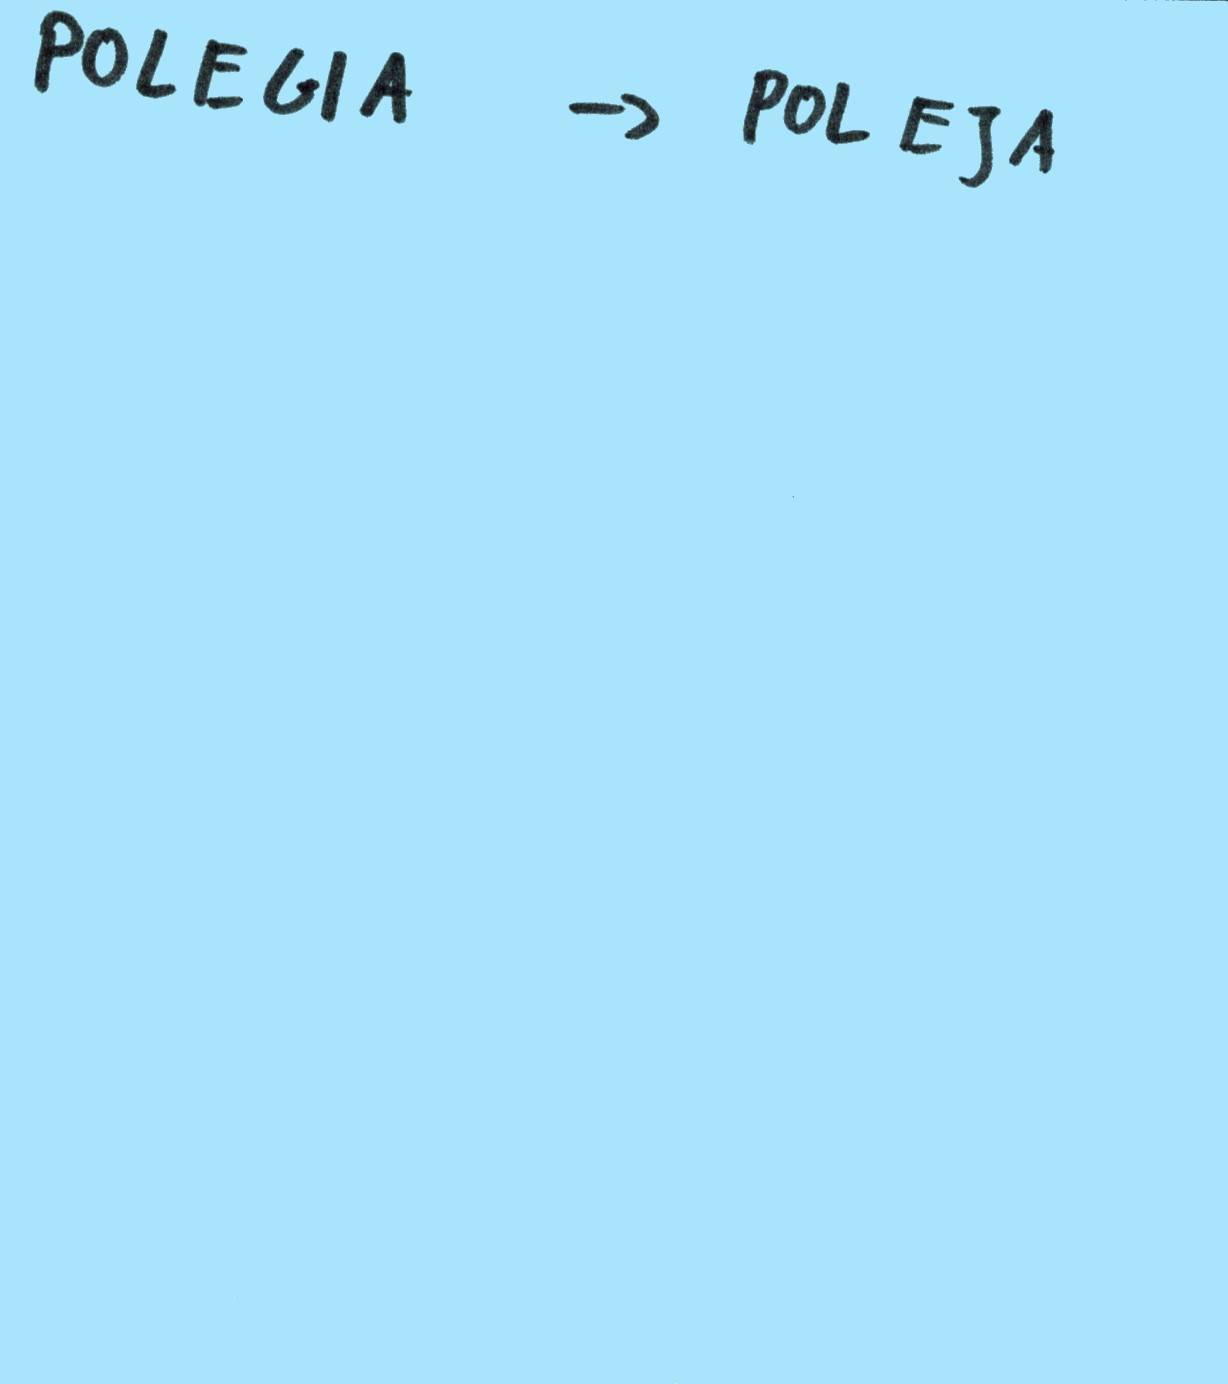 POLEGIA → POLEJA